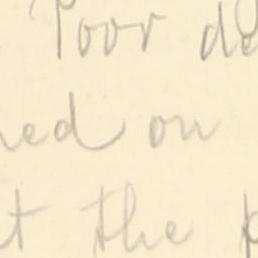 Poor de
ned on
t the